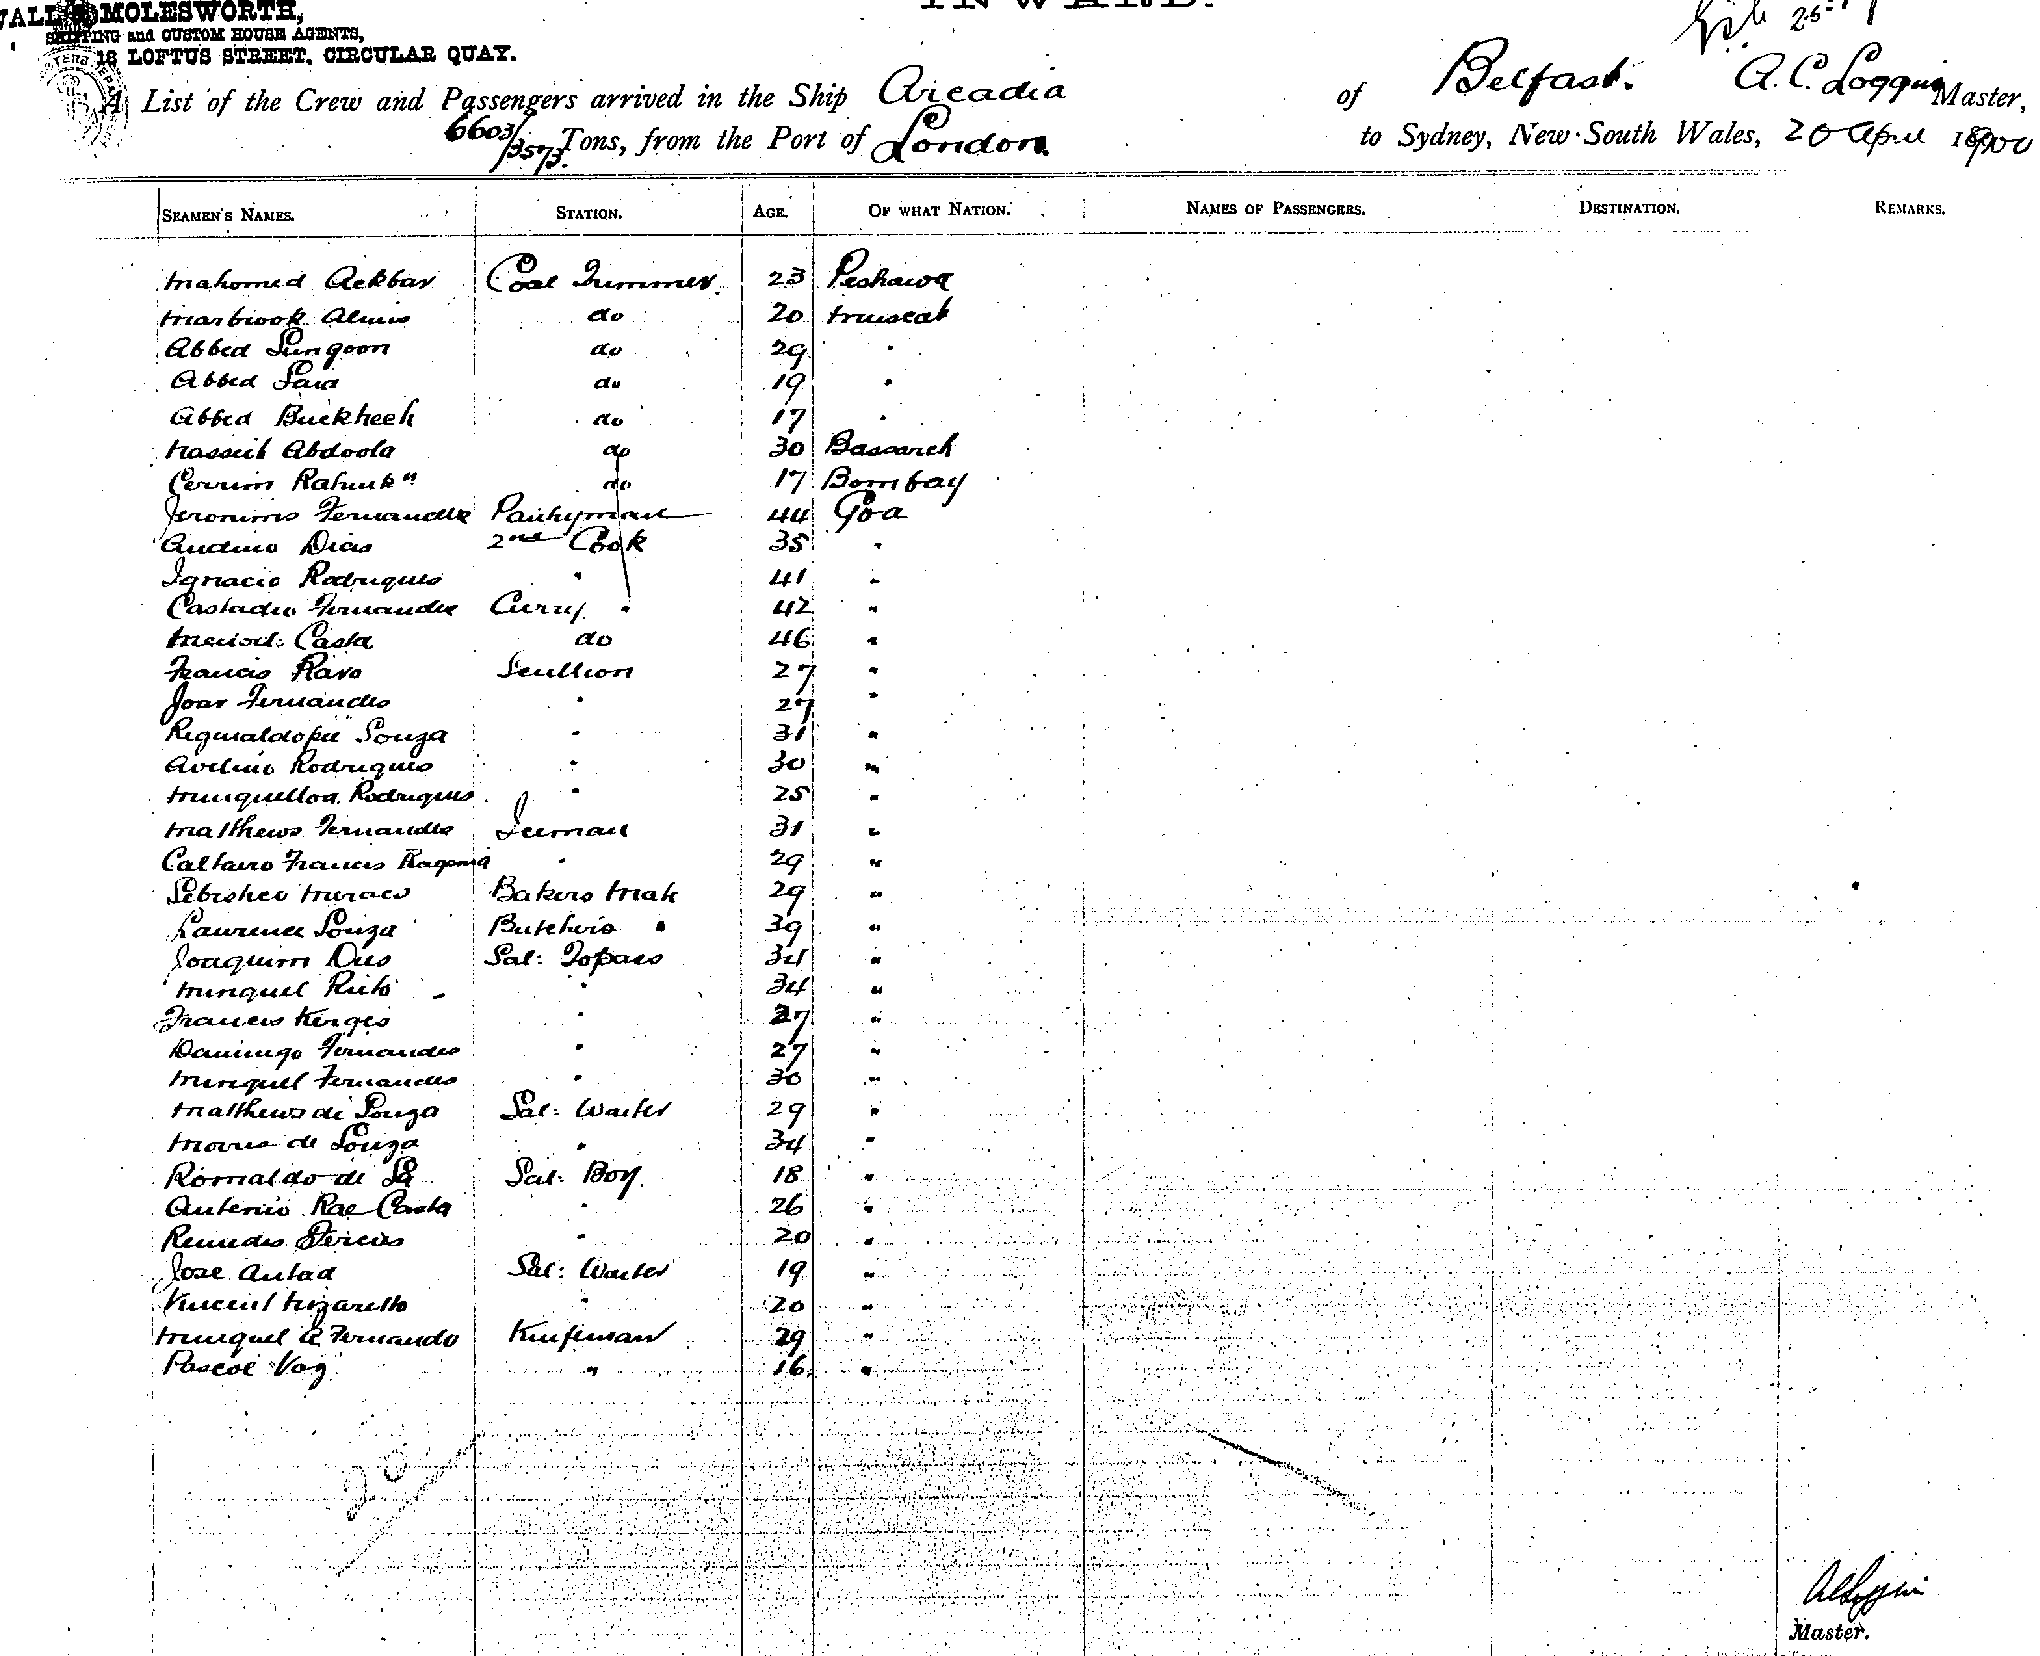 INWARD.
WALL & MOLESWORTH,
SHIPPING and CUSTOM HOUSE AGENTS,
18 LOFTUS STREET, CIRCULAR QUAY.
A List of the Crew and Passengers arrived in the Ship Arcadia of Belfast. A. C. Loggin Master,
6603/3573. Tons, from the Port of London to Sydney, New South Wales, 20 April 1900
SEAMEN'S NAMES. STATION. AGE. OF WHAT NATION. NAMES OF PASSENGERS. DESTINATION. REMARKS.
Mahomed Ackbar Coal Trimmer. 23 Peshawa
Marbrook Almis do 20 Muscat
Abbed Sungoon do 29 "
Abbed Said do 19 "
Abbed Buckheeh do 17 "
Nassub Abdoola do 30 Bassareh
Cerrim Rahmk" do 17 Bombay
Jeronimo Fernandez Pantryman 44 Goa
Dias 2nd Cook 35 "
Ignacio Rodrigues " 41 "
Fernandez Curry " 42 "
Costa do 46 "
Francis Ravo Scullion 27 "
Joao Fernandes " 27 "
Souza " 31 "
Avelino Rodrigues " 30 "
Rodrigues " 25 "
Matthews Fernandes Iceman 31 "
Francis " 29 "
Bakers Mate 29 "
Laurence Souza Butchers " 39 "
Joaquim Dias Sal: Topass 34 "
Minguel " 34 "
Francis " 27 "
Domingo Fernandes " 27 "
Minguel Fernandes " 30 "
Matthews de Souza Sal: Waiter 29 "
de Souza " 34 "
Romaldo de Sa Sal: Boy. 18 "
Antonio Rae Costa " 26 "
" 20 "
Jose Sal: Waiter 19 "
Vincent " 20 "
Minguel A Fernando Knifeman 29 "
Pascoe Vaz " 16 "
A C Loggin
Master.